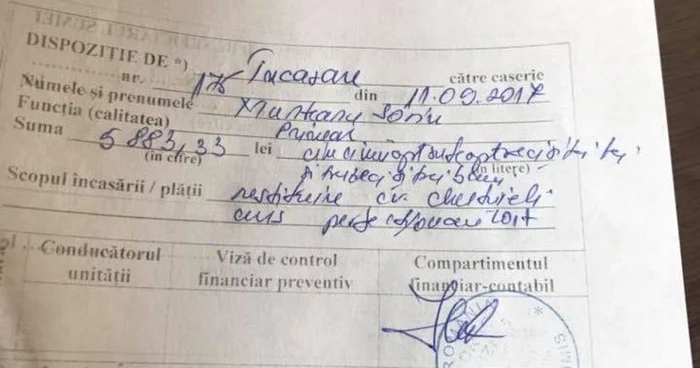 DISPOZIȚIE DE *) Încasare către caserie
nr. 175 din 11.09.2017
Numele și prenumele Munteanu Sorin
Funcția (calitatea) Primar
Suma 5 883,33 lei
(în cifre) (în litere)
și treizeci și trei bani
Scopul încasării / plății restituire cv. cheltuieli
curs perf. 2017
Conducătorul Viză de control Compartimentul
unității financiar preventiv financiar-contabil
ROMÂNIA